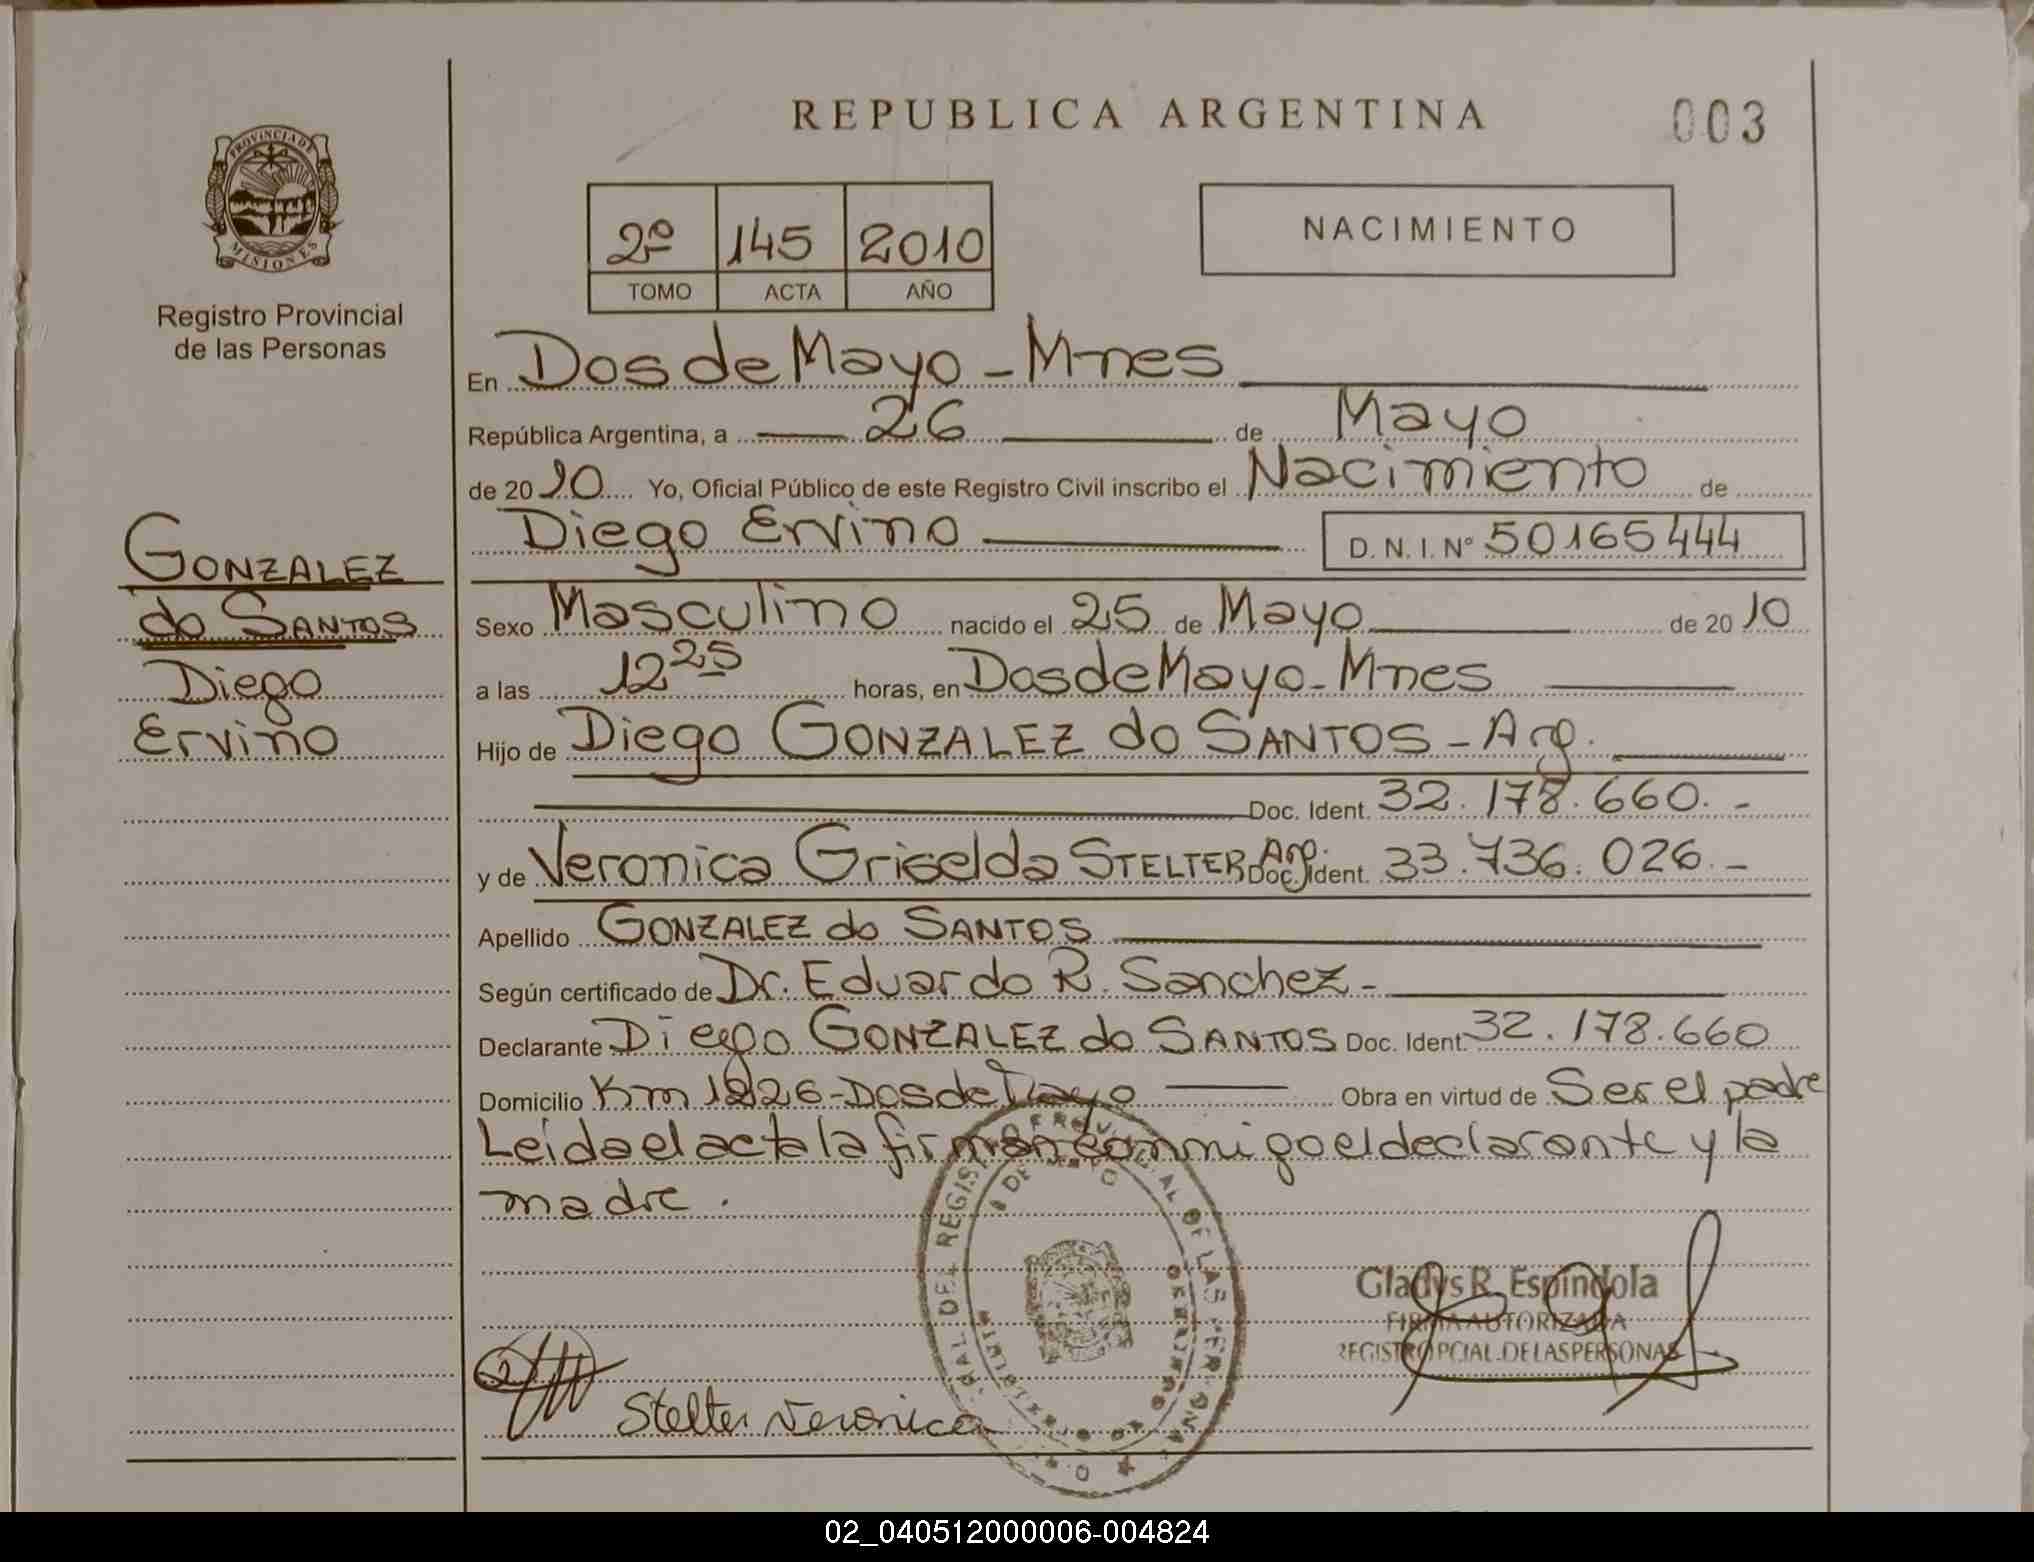 REPUBLICA ARGENTINA
003
PROVINCIA DE
MISIONES
Registro Provincial
de las Personas
2º 145 2010
TOMO ACTA AÑO
NACIMIENTO
En Dos de Mayo - Mnes
República Argentina, a 26 de Mayo
de 2010 Yo, Oficial Público de este Registro Civil inscribo el Nacimiento de
Diego Ervino D. N. I. Nº 50165444
GONZALEZ
do SANTOS
Diego
Ervino
Sexo Masculino nacido el 25 de Mayo de 2010
a las 12 25 horas, en Dos de Mayo - Mnes
Hijo de Diego GONZALEZ do SANTOS - Arg.
Doc. Ident. 32.178.660.-
y de Veronica Griselda STELTER Arg. Doc. Ident. 33.736.026.-
Apellido GONZALEZ do SANTOS
Según certificado de Dr. Eduardo R. Sanchez -
Declarante Diego GONZALEZ do SANTOS Doc. Ident. 32.178.660
Domicilio Km 1226 - Dos de Mayo Obra en virtud de Ser el padre
Leida el acta la firman conmigo el declarante y la
madre.
Gladys R. Espindola
FIRMA AUTORIZADA
REGISTRO PCIAL. DE LAS PERSONAS
Stelter Veronica
02_040512000006-004824